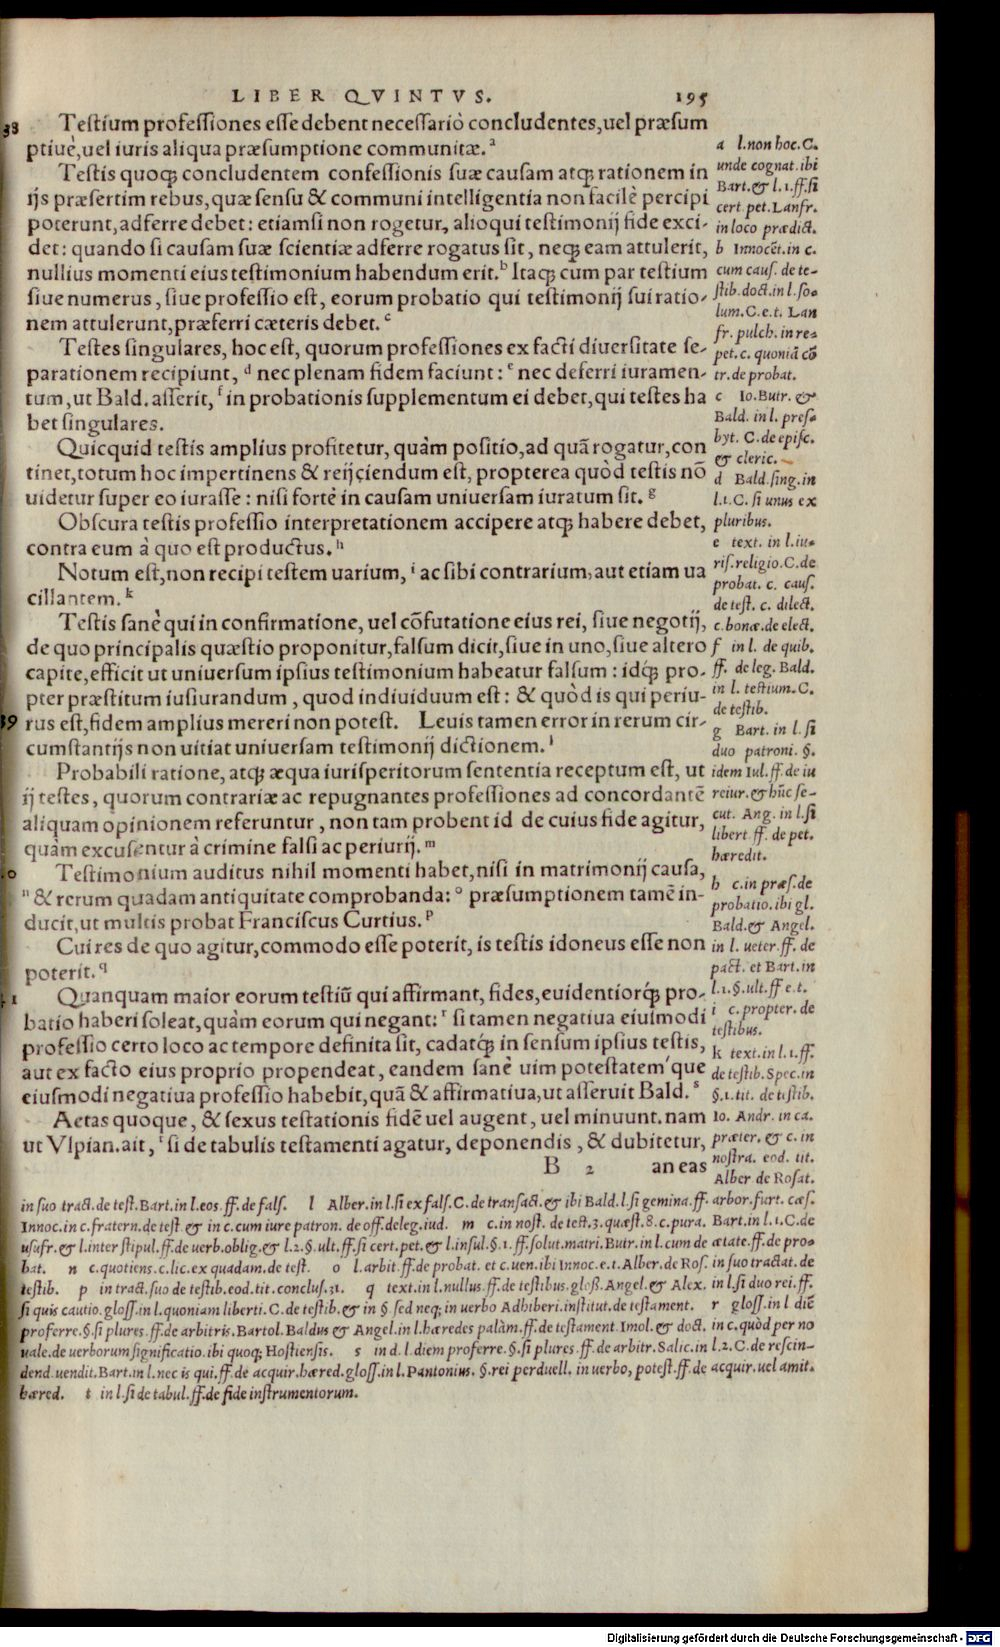 LIBER QVINTVS. 195
38 Testium professiones esse debent necessariò concludentes, uel præsum
ptiuè, uel iuris aliqua præsumptione communitæ. a
Testis quoq; concludentem confessionis suæ causam atq; rationem in
ijs præsertim rebus, quæ sensu & communi intelligentia non facilè percipi
poterunt, adferre debet: etiamsi non rogetur, alioqui testimonij fide exci-
det: quando si causam suæ scientiæ adferre rogatus sit, neq; eam attulerit,
nullius momenti eius testimonium habendum erit. b Itaq; cum par testium
siue numerus, siue professio est, eorum probatio qui testimonij sui ratio-
nem attulerunt, præferri cæteris debet. c
Testes singulares, hoc est, quorum professiones ex facti diuersitate se-
parationem recipiunt, d nec plenam fidem faciunt: e nec deferri iuramen-
tum, ut Bald. asserit, f in probationis supplementum ei debet, qui testes ha
bet singulares.
Quicquid testis amplius profitetur, quàm positio, ad quã rogatur, con
tinet, totum hoc impertinens & reijciendum est, propterea quòd testis nõ
uidetur super eo iurasse: nisi fortè in causam uniuersam iuratum sit. g
Obscura testis professio interpretationem accipere atq; habere debet,
contra eum à quo est productus. h
Notum est, non recipi testem uarium, i ac sibi contrarium, aut etiam ua
cillantem. k
Testis sanè qui in confirmatione, uel cõfutatione eius rei, siue negotij,
de quo principalis quæstio proponitur, falsum dicit, siue in uno, siue altero
capite, efficit ut uniuersum ipsius testimonium habeatur falsum: idq́; pro-
pter præstitum iusiurandum, quod indiuiduum est: & quòd is qui periu-
39 rus est, fidem amplius mereri non potest. Leuis tamen error in rerum cir-
cumstantijs non uitiat uniuersam testimonij dictionem. l
Probabili ratione, atq; æqua iurisperitorum sententia receptum est, ut
ij testes, quorum contrariæ ac repugnantes professiones ad concordantẽ
aliquam opinionem referuntur, non tam probent id de cuius fide agitur,
quàm excusentur à crimine falsi ac periurij. m
0 Testimonium auditus nihil momenti habet, nisi in matrimonij causa,
n & rerum quadam antiquitate comprobanda: o præsumptionem tamẽ in-
ducit, ut multis probat Franciscus Curtius. p
Cui res de quo agitur, commodo esse poterit, is testis idoneus esse non
poterit. q
41 Quanquam maior eorum testiũ qui affirmant, fides, euidentiorq́; pro-
batio haberi soleat, quàm eorum qui negant: r si tamen negatiua eiusmodi
professio certo loco ac tempore definita sit, cadatq́; in sensum ipsius testis,
aut ex facto eius proprio propendeat, eandem sanè uim potestatem´que
eiusmodi negatiua professio habebit, quã & affirmatiua, ut asseruit Bald. s
Aetas quoque, & sexus testationis fidẽ uel augent, uel minuunt. nam
ut Vlpian. ait, t si de tabulis testamenti agatur, deponendis, & dubitetur,
B 2 an eas
a l. non hoc. C.
unde cognat. ibi
Bart. & l. 1. ff. si
cert. pet. Lanfr.
in loco prædict.
b Innocẽt. in c.
cum caus. de te-
stib. doct. in l. so-
lum. C. e. t. Lan
fr. pulch. in re-
pet. c. quoniã cõ
tr. de probat.
c Io. Butr. &
Bald. in l. pres-
byt. C. de episc.
& cleric.
d Bald. sing. in
l. 1. C. si unus ex
pluribus.
e text. in l. iu-
ris. religio. C. de
probat. c. caus.
de test. c. dilect.
c. bonæ. de elect.
f in l. de quib.
ff. de leg. Bald.
in l. testium. C.
de testib.
g Bart. in l. si
duo patroni. §.
idem Iul. ff. de iu
reiur. & hũc se-
cut. Ang. in l. si
libert. ff. de pet.
hæredit.
h c. in præs. de
probatio. ibi gl.
Bald. & Angel.
in l. ueter. ff. de
pact. et Bart. in
l. 1. §. ult. ff e. t.
i c. propter. de
testibus.
k text. in l. 1. ff.
de testib. Spec. in
§. 1. tit. de testib.
Io. Andr. in ca.
præter. & c. in
nostra. eod. tit.
Alber de Rosat.
in suo tract. de test. Bart. in l. eos. ff. de fals. l Alber. in l. si ex fals. C. de transact. & ibi Bald. l. si gemina. ff. arbor. furt. cæs.
Innoc. in c. fratern. de test & in c. cum iure patron. de off. deleg. iud. m c. in nost. de test. 3. quæst. 8. c. pura. Bart. in l. 1. C. de
usufr. & l. inter stipul. ff. de uerb. oblig. & l. 2. §. ult. ff. si cert. pet. & l. insul. §. 1. ff. solut. matri. Butr. in l. cum de ætate. ff. de pro-
bat. n c. quotiens. c. lic. ex quadam. de test. o l. arbit. ff. de probat. et c. uen. ibi Innoc. e. t. Alber. de Ros. in suo tractat. de
testib. p in tract. suo de testib. eod. tit. conclus. 31. q text. in l. nullus. ff. de testibus. gloß. Angel. & Alex. in l. si duo rei. ff.
si quis cautio. gloss. in l. quoniam liberti. C. de testib. & in §. sed neq; in uerbo Adhiberi. institut. de testament. r gloss. in l diẽ
proferre. §. si plures. ff. de arbitris. Bartol. Baldus & Angel. in l. hæredes palàm. ff. de testament. Imol. & doct. in c. quòd per no
uale. de uerborum significatio. ibi quoq; Hostiensis. s in d. l. diem proferre. §. si plures. ff. de arbitr. Salic. in l. 2. C. de rescin-
dend. uendit. Bart. in l. nec is qui. ff. de acquir. hæred. gloss. in l. Pantonius. §. rei perduell. in uerbo, potest. ff. de acquir. uel amit.
hæred. t in l. si de tabul. ff. de fide instrumentorum.
Digitalisierung gefördert durch die Deutsche Forschungsgemeinschaft - DFG